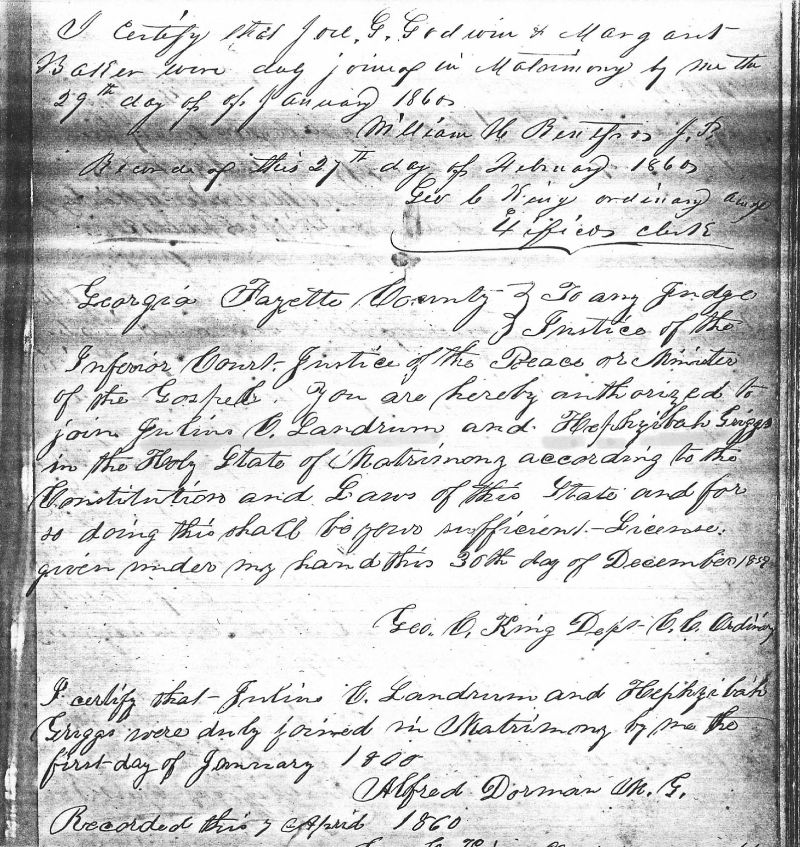 I certify that Joel. G. Godwin & Margaret
Baker were duly joined in Matrimony by me the
29th day of of January 1860
William H J. P.
Recorded this 27th day of February 1860
Geo C King ordinary and
Exificos clerk
Georgia Fayette County } To any Judge
} Justice of the
Inferior Court. Justice of the Peace or Minister
of the Gospel. You are hereby authorized to
join Julius C. Landrum and Hephzibah Griggs
in the Holy State of Matrimony according to the
Constitution and Laws of this State and for
so doing this shall be your sufficient License.
given under my hand this 30th day of December 1859
Geo. C. King Dept C. C. Ordinary
I certify that Julius C. Landrum and Hephzibah
Griggs were duly joined in Matrimony by me the
first day of January 1860
Alfred Dorman M. G.
Recorded this 7 April 1860